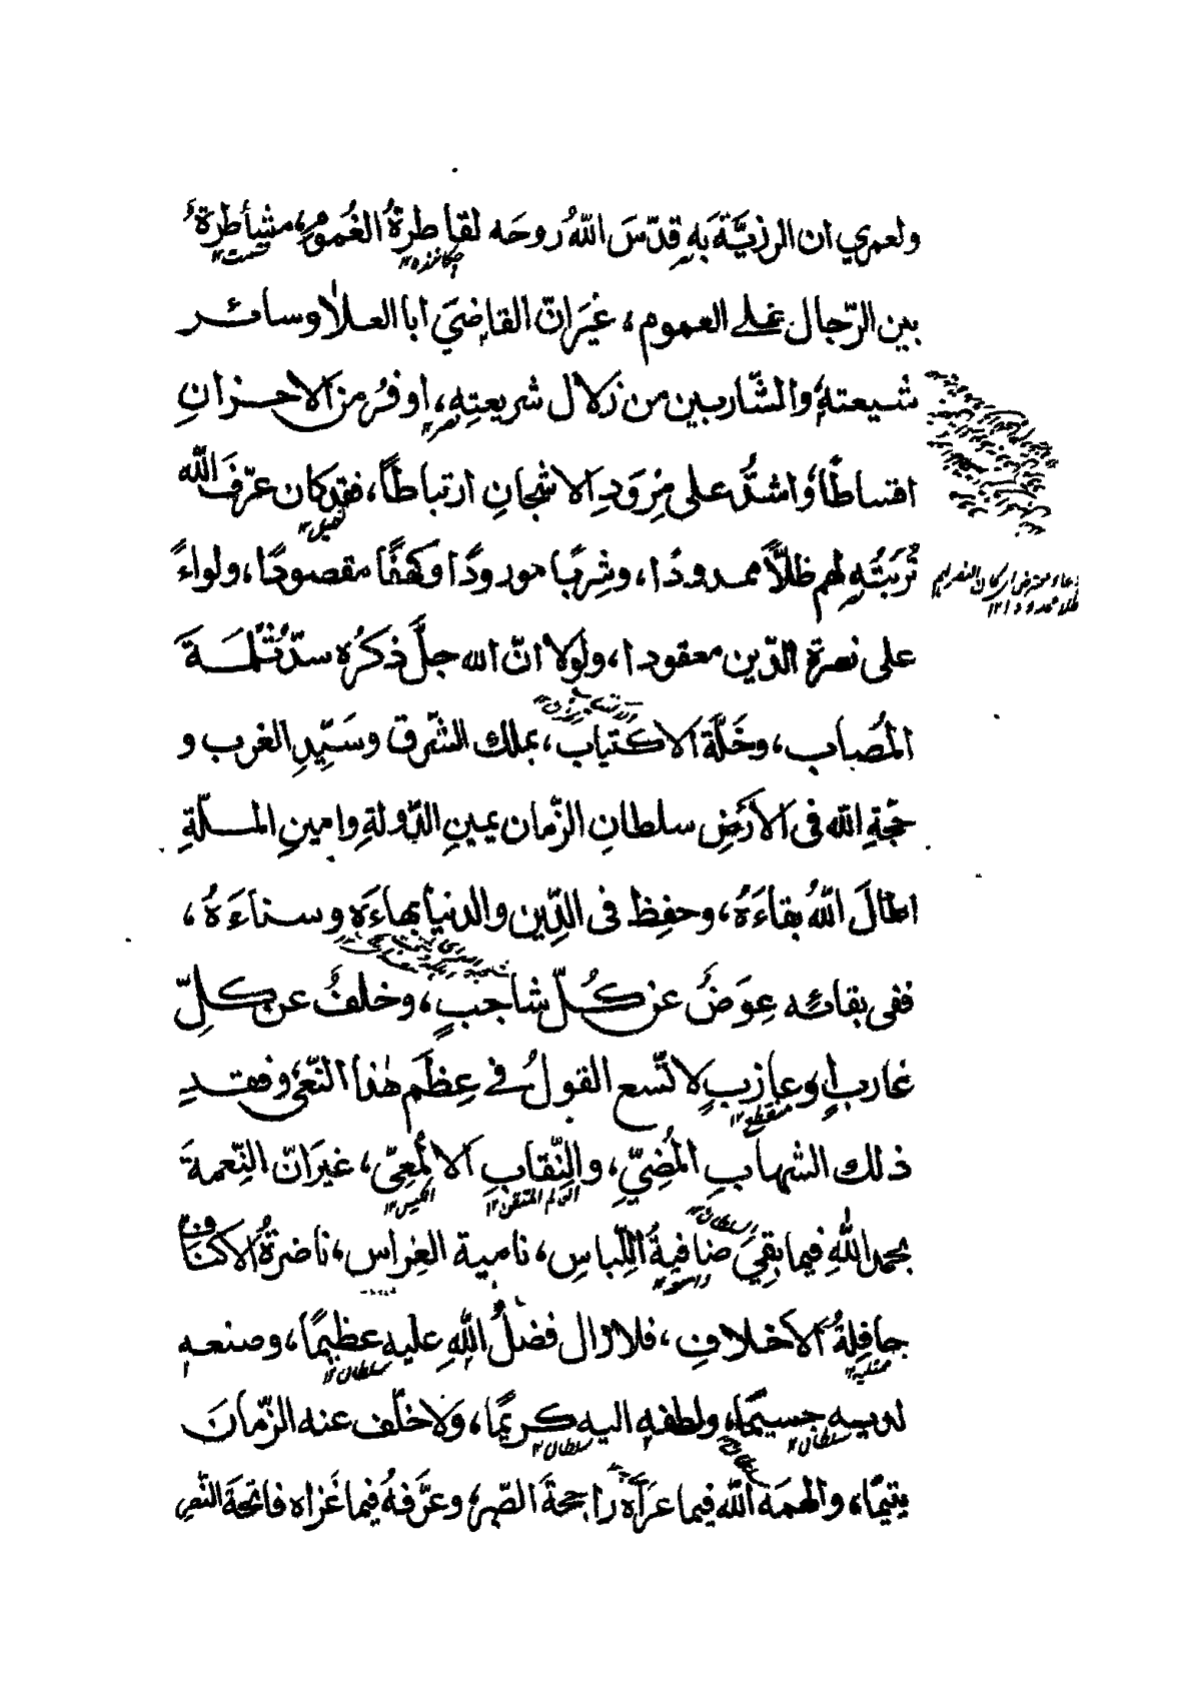 ولعمري ان الرزيَّةَ بَهِ قدّسَ اللهُ روحَه لقاطرةُ الغُمومِ، مشأطرةُ
بين الرّجال على العموم، غَيرَانّ القاضيَ ابا العلاٰ وسائر
شيعتهٖ والشّاربين من زلال شريعتِهٖ، اوفرُ من الاحزانِ
اقساطًا واشدُّ على مِزوَدِ الاشجانِ ارتباطًا، فقد كان عرّفَ الله
تُربَتَهٖ لهم ظلّاً ممدودًا، وشِربًا مورودًا وكهفًا مقصودًا، ولواءً
على نصرة الدّين معقودا، ولولا انّ الله جلَّ ذكرُه سدّ ثُلمةَ
المُصاب، وخَلّةَ الاكتياب، بملك الشّرق وسَيِّدِ الغرب و
حجّةِ الله فى الأرَضِ سلطانِ الزّمان يمينِ الدّولةِ وامينِ الملّةِ
اطالَ اللهُ بقاءَهٗ، وحفِظ فى الدِّين والدنيا بهاءَه وسناءَهُ،
ففى بقائه عِوَضٌ عن كُلّ شاجبٍ، وخلفٌ عن كلِّ
غاربٍ وعازبٍ لاتّسع القولُ فى عِظَم هٰذا النّعىٖ وفقدِ
ذلك الشهابِ المُضىّٖ، والنّقابِ الالمعىّ، غيرَانّ النِّعمةَ
بحمد اللهِ فيما بقىَ ضافيةُ اللّباسِ، نامية الغِراس، ناضرةُ الاكناف
حافلةُ الأخلافِ، فلازال فضلُ اللهِ عليهِ عظيمًا، وصنعهٖ
لديهِ جسيمًا، ولطفهٖ اليه كريمًا، ولا خلّف عنه الزّمانَ
يتيمًا، والهمَهُ اللّه فيما عرَاه راجحةَ الصّبرِ، وعرَّفهُ فيما غزاه فاتحةَ النّصر